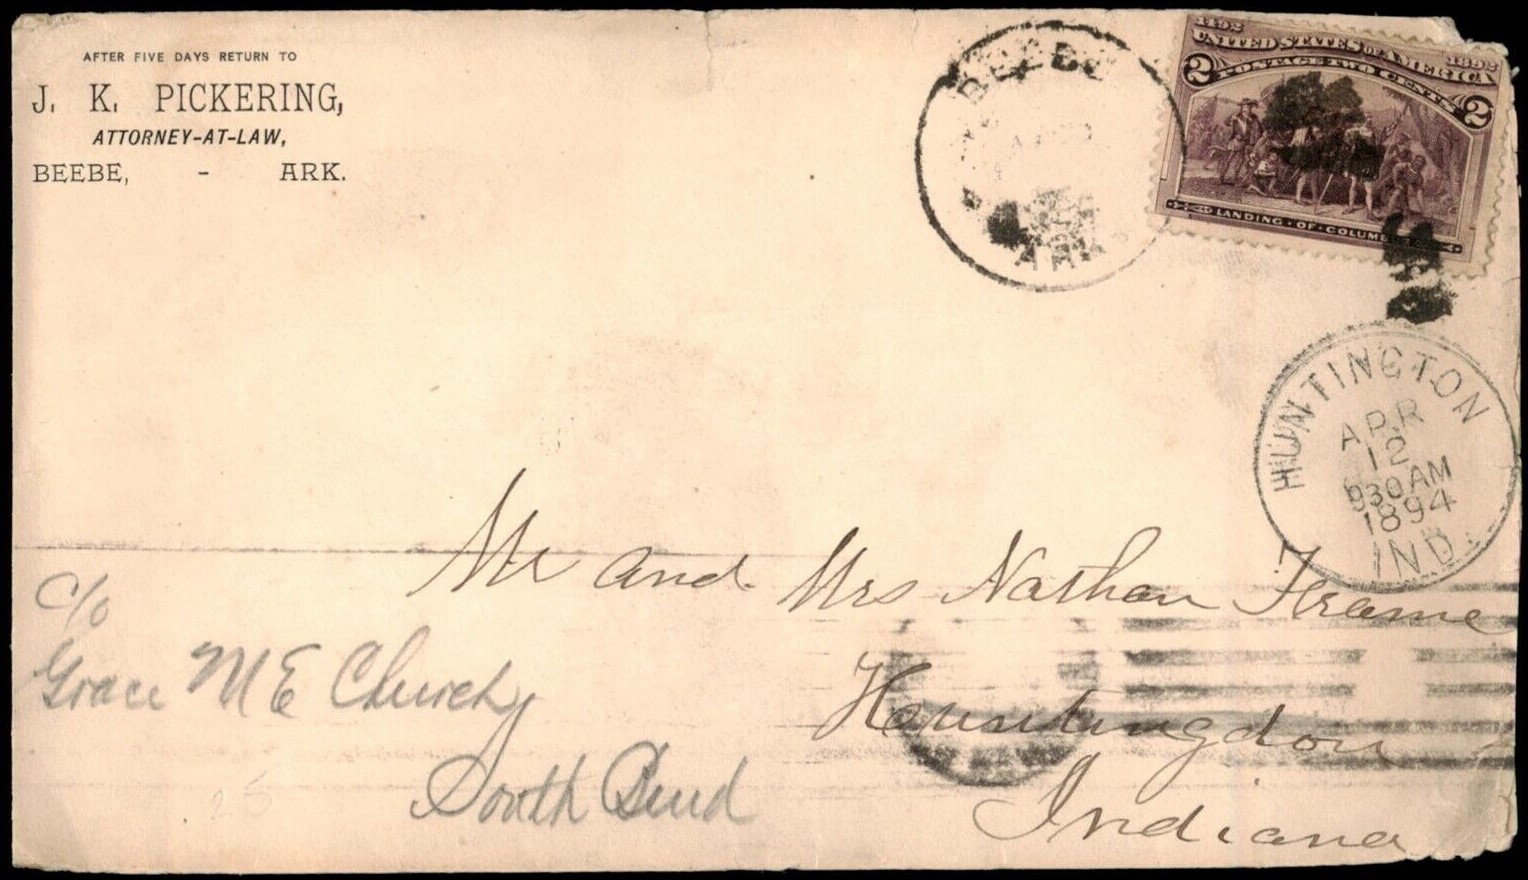 AFTER FIVE DAYS RETURN TO
J. K. PICKERING,
ATTORNEY-AT-LAW,
BEEBE, - ARK.
BEEBE
ARK
1492 1892
UNITED STATES OF AMERICA
2 POSTAGE TWO CENTS 2
LANDING OF COLUMBUS
HUNTINGTON
APR
12
930 AM
1894
IND.
Mr and Mrs Nathan Frame
Hountingdon
Indiana
c/o
Grace M E Church
South Bend
25